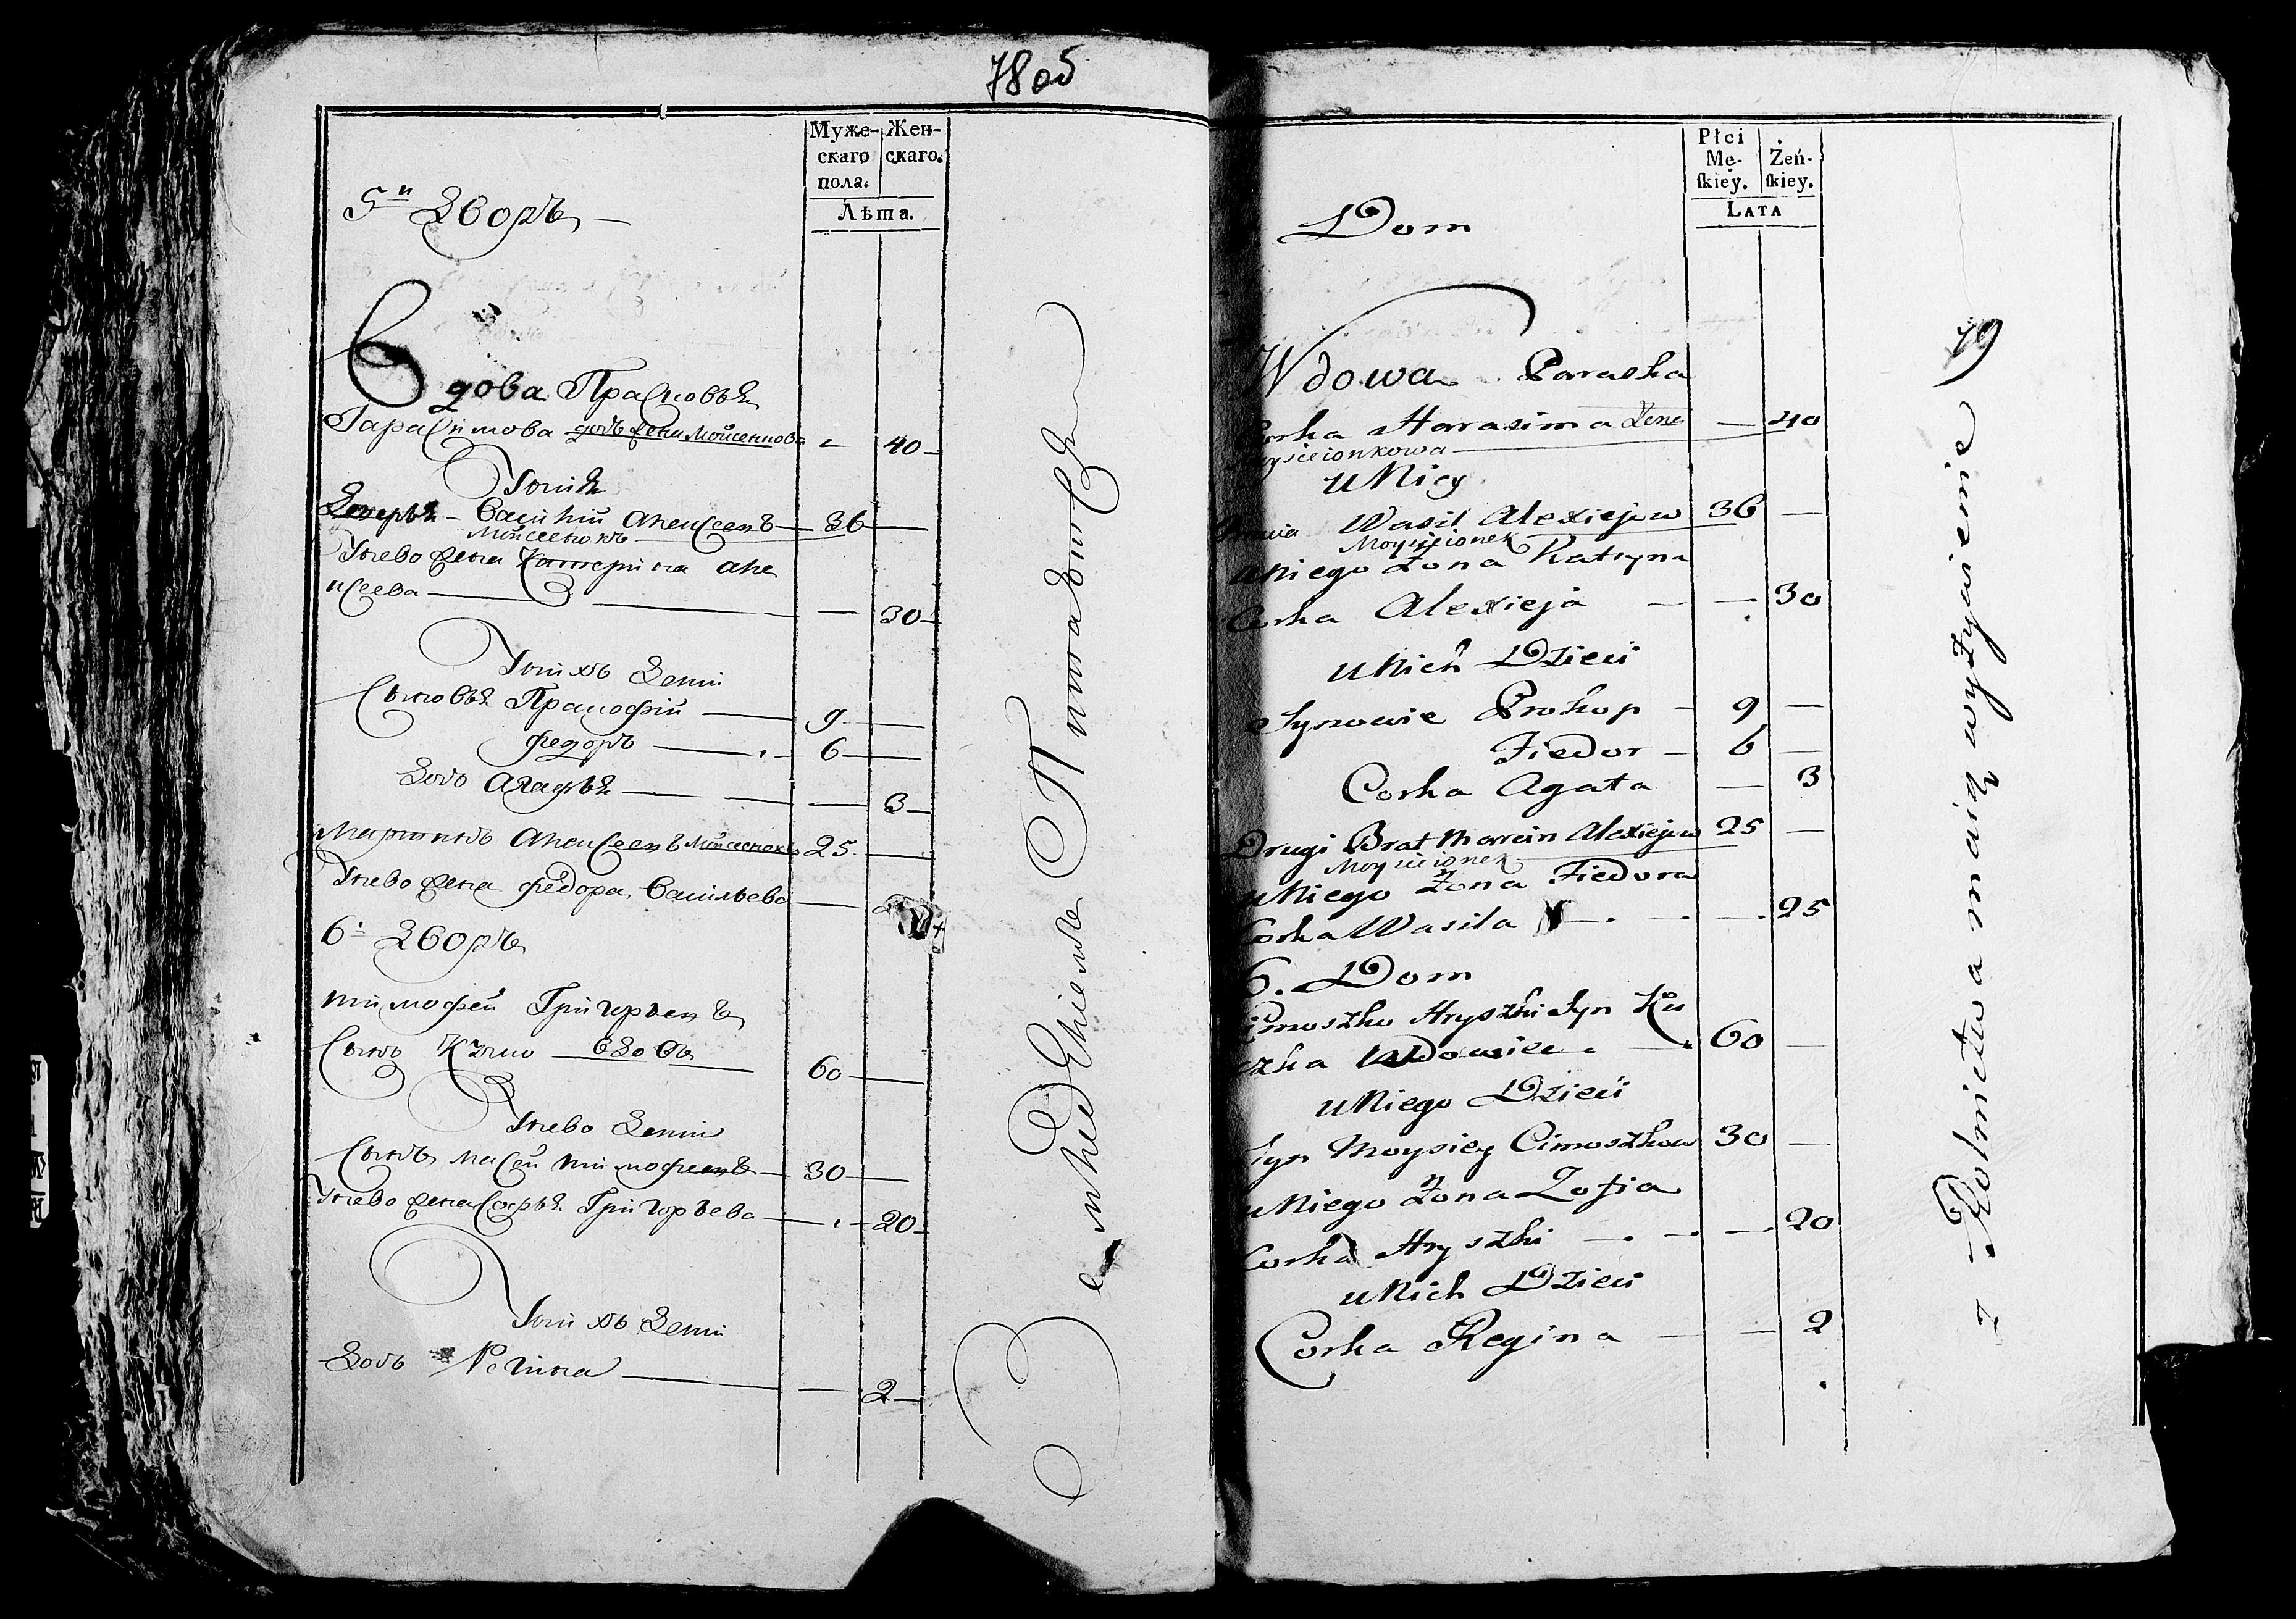 78 об
Муже-
скаго
пола.
Жен-
скаго.
Лѣта.
5й Дворъ —
Вдова Прасковья
Гарасимова дочъ жена Мойсеенкова — 40 —
У ней
Деверья — Василій Алексеевъ — 36 —
Мойсеенокъ
У нево жена Катерина Але
ксеева — — 30 —
У нихъ Дети
Сыновья Пракофій — 9 —
Федоръ — 6 —
Дочь Агафья — — 3 —
Мартинъ Алексеевъ Мойсеенокъ 25 —
У нево жена Федора Васильева —
6й Дворъ
Тимофей Григорьевъ
Сынъ вдовъ 60 —
У нево Дети
Сынъ Мосей Тимофеевъ — 30 —
У нево жена Софья Григорьева — — 20 —
У нихъ Дети
Дочь Регина — — 2 —
Землед
Płci
Mę-
skiey.
Żeń-
skiey.
LATA
Dom
Wdowa Paraska
Corka Harasima Żona — 40
uNiey
Wasil Alexiejew 36 —
Moysieionek
uNiego Żona Katryna
Corka Alexieja — — 30
uNich Dzieci
Synowie Prokop — 9 —
Fiedor — 6 —
Corka Agata — 3
Drugi Brat Marcin Alexiejew 25 —
Moysieionek
uNiego Żona Fiedora
Corka Wasila — . — . — . 25
6. Dom
Cimoszko Hryszki Syn Ku
szka Wdowiec . — 60 —
uNiego Dzieci
Syn Moysiey Cimoszkow 30 —
uNiego Żona Zofia
Corka Hryszki — . — . — . 20
uNich Dzieci
Corka Regina — — 2
z Rolnictwa maią wyżywienie
79